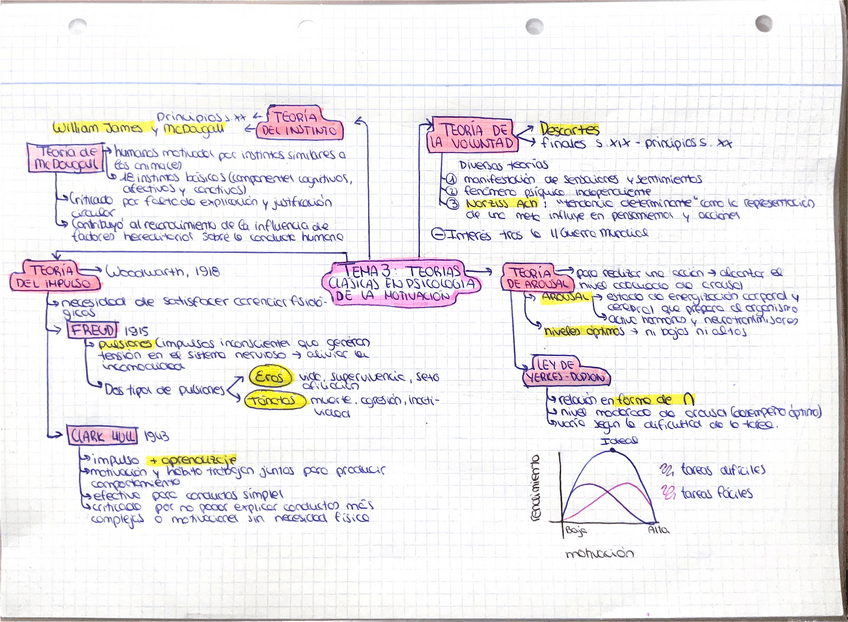 TEMA 3: TEORÍAS
CLÁSICAS EN PSICOLOGÍA
DE LA MOTIVACIÓN
Principios s. XX ← TEORÍA
DEL INSTINTO
William James y McDougall
Teoría de
McDougall
humanos motivados por instintos similares a
los animales
18 instintos básicos (componentes cognitivos,
afectivos y conativos)
Criticado por falta de explicación y justificación
circular
Contribuyó al reconocimiento de la influencia de
factores hereditarios sobre la conducta humana
TEORÍA DE
LA VOLUNTAD
Descartes
finales s. XIX - principios s. XX
Diversas teorías
① manifestación de sensaciones y sentimientos
② fenómeno psíquico independiente
③ Narziss Ach: "tendencia determinante" como la representación
de una meta influye en pensamientos y acciones
⊖ Interés tras la II Guerra Mundial
TEORÍA
DEL IMPULSO
→ Woodworth, 1918
necesidad de satisfacer carencias fisioló-
gicas
FREUD 1915
pulsiones (impulsos inconscientes que generan
tensión en el sistema nervioso → aliviar la
incomodidad
Dos tipos de pulsiones
Eros vida, supervivencia, sexo
afiliación
Tánatos muerte, agresión, inacti-
vidad
CLARK HULL 1943
impulso + aprendizaje
motivación y hábito trabajan juntas para producir
comportamiento
efectivo para conductas simples
criticado por no poder explicar conductas más
complejas o motivaciones sin necesidad física
TEORÍA
DE AROUSAL
para realizar una acción → alcanzar el
nivel adecuado de arousal
AROUSAL → estado de energización corporal y
cerebral que prepara al organismo
activa hormonas y neurotransmisores
niveles óptimos → ni bajos ni altos
LEY DE
YERKES-DODSON
relación en forma de ∩
nivel moderado de arousal (desempeño óptimo)
varía según la dificultad de la tarea.
Ideal
rendimiento
Baja
Alta
motivación
tareas difíciles
tareas fáciles